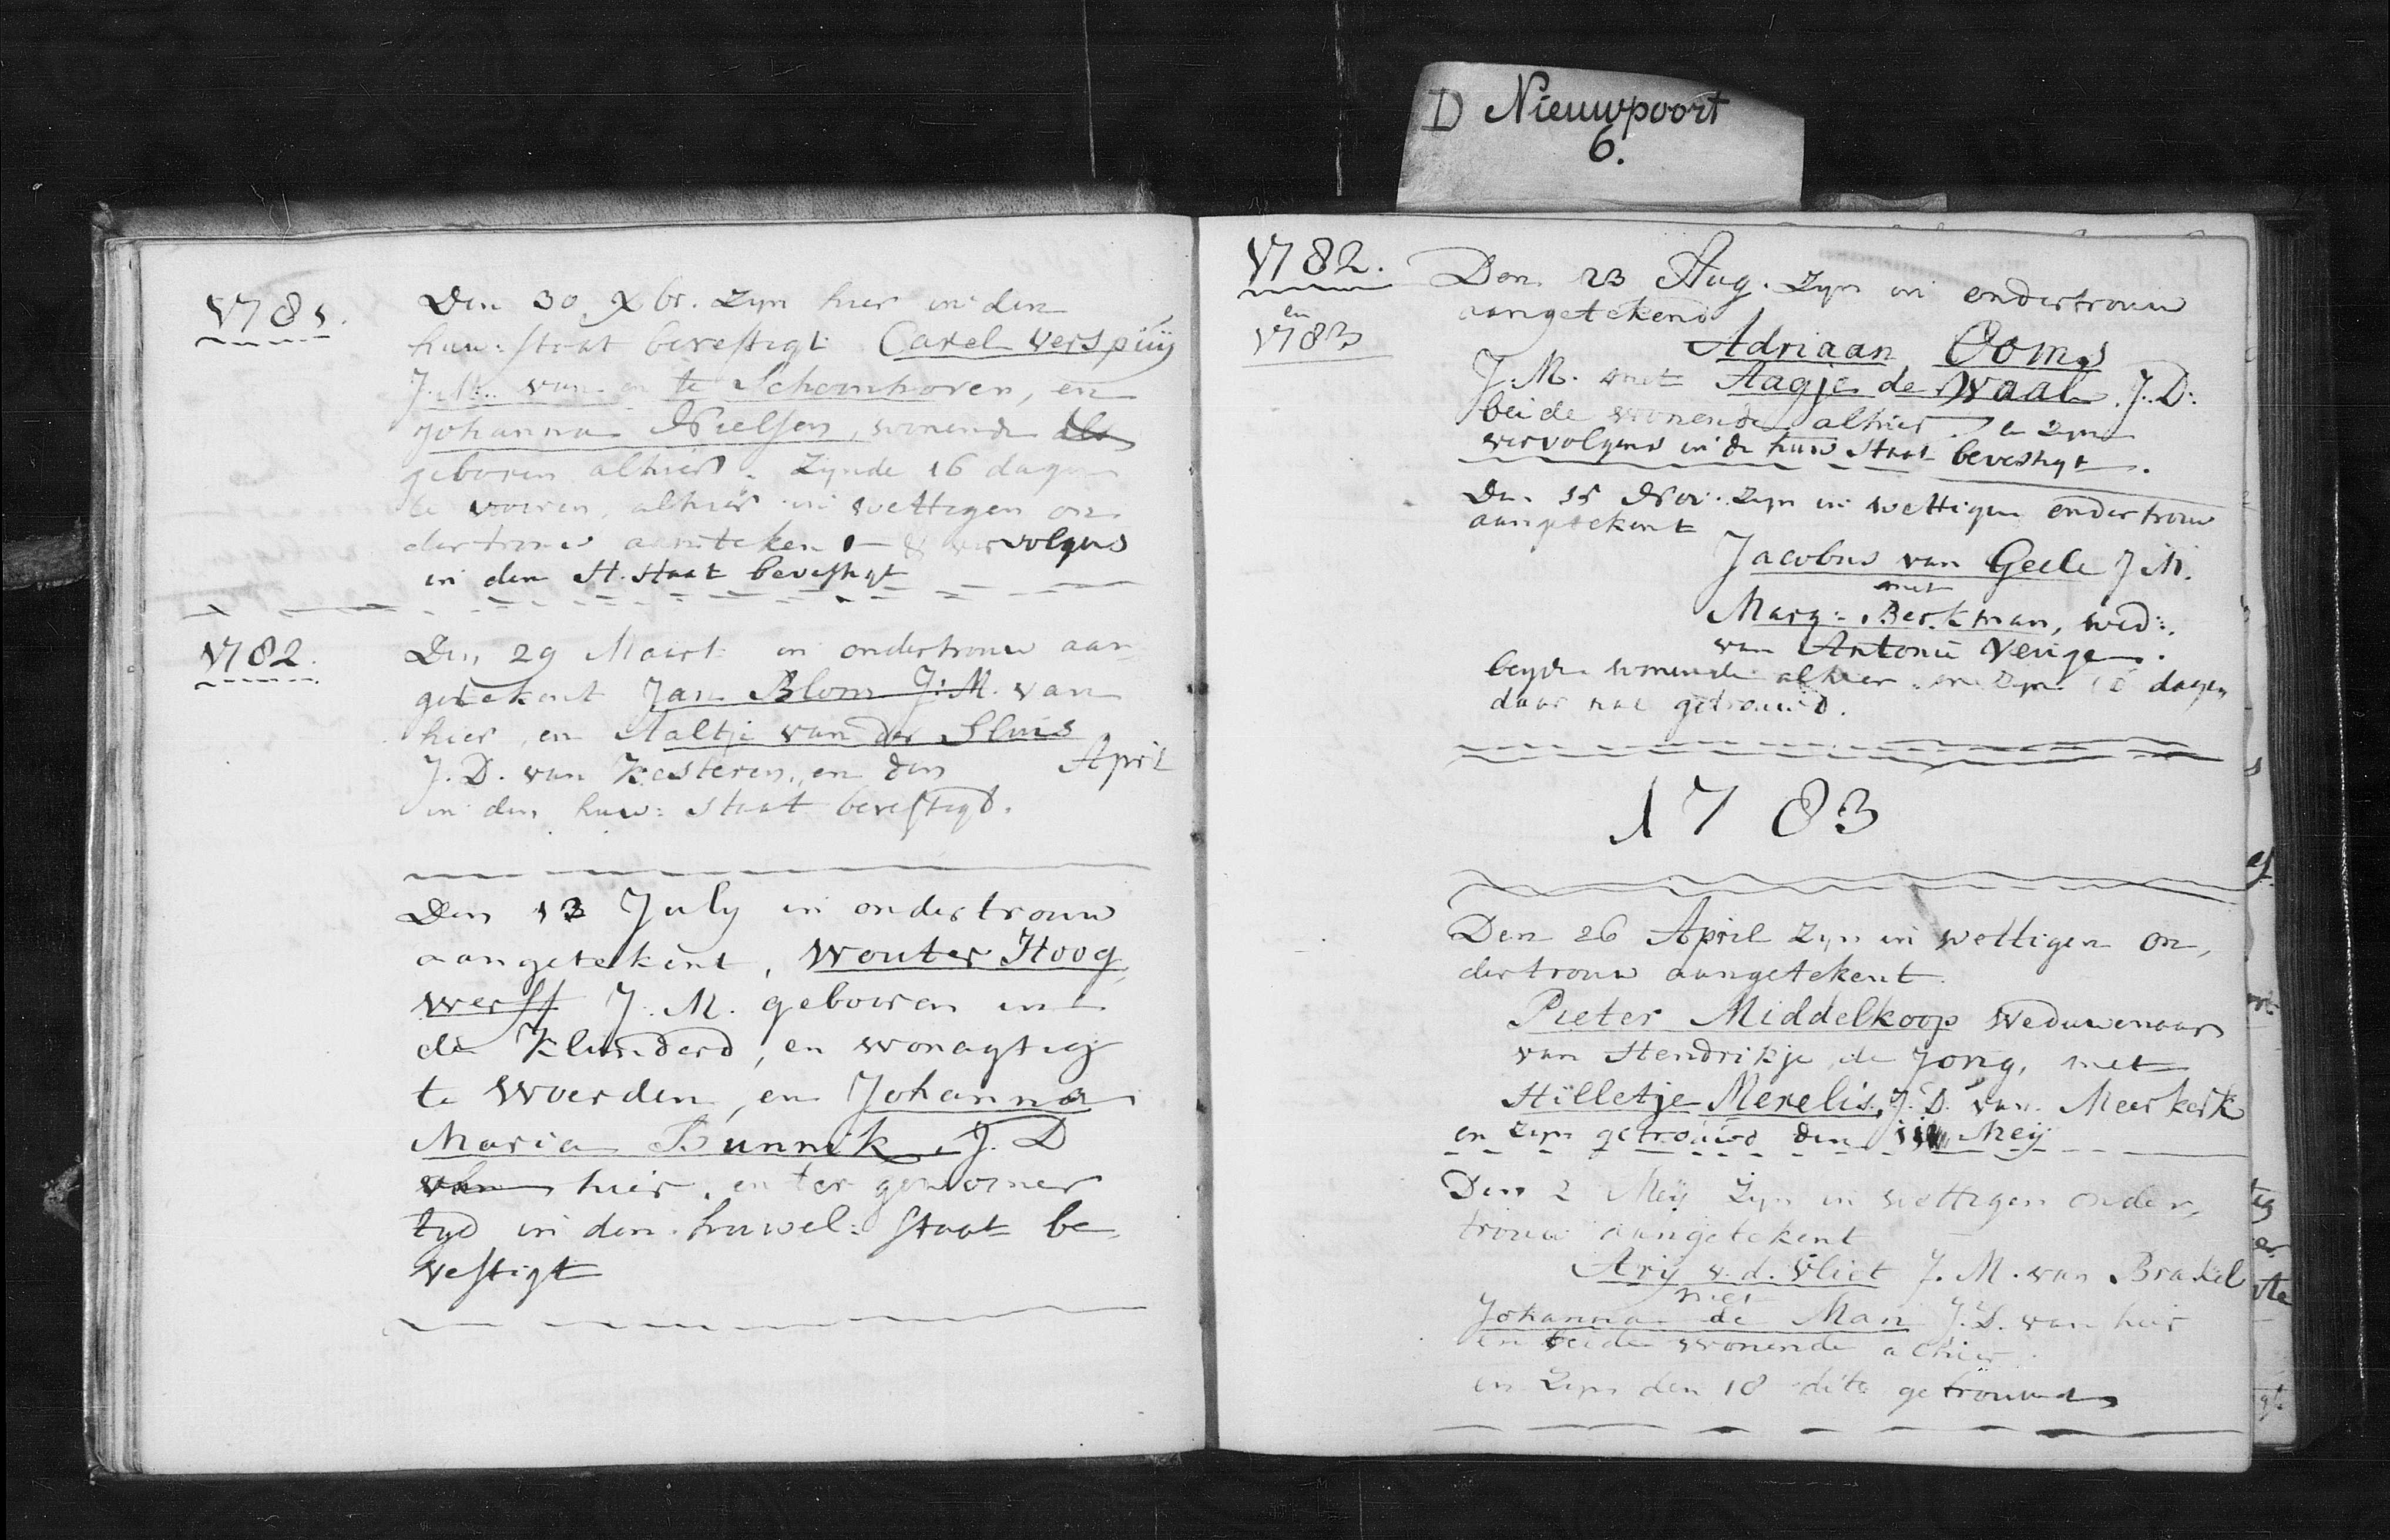 D Nieuwpoort
6.
1781.
Den 30 Xbr. zyn hier in den
huw: staat bevestigt Carel verspuÿ
J.M. van en te Schoonhoven, en
Johanna Nielsen, wonende als
geboren alhier. Zynde 16 dagen
te vooren, alhier in wettigen on
dertrouw aangeteken & vervolgens
in den H. Staat bevestigt
1782.
Den 29 Maart in ondertrouw aan
getekent Jan Blom J.M. van
hier, en Aaltje van der Sluis
J.D. van Kesteren, en den April
in den huw: staat bevestigd.
Den 13 July in ondertrouw
aangetekent, Wouter Hoog
werff J.M. geboren in
de Klunderd, en wonagtig
te Woerden, en Johanna
Maria Bunnik, J.D
van hier, en ter gewoner
tyd in den huwel: staat be
vestigt
1782.
en
1783
Den 23 Aug. zyn in ondertrouw
aangetekend
Adriaan Ooms
J.M. met Aagje de Waal. J.D:
beide wonende alhier. en zyn
vervolgens in de huw Staat bevestigt.
Den 15 Nov. zyn in wettigen ondertrouw
aangetekent
Jacobus van Geele J.M.
met
Marg: Berkman, wed:
van Antonie Venge.
beyde wonende alhier en zyn dagen
daar nae getrouwd.
1783
Den 26 April zyn in wettigen on,
dertrouw aangetekent.
Pieter Middelkoop Weduwenaar
van Hendrikje de Jong, met
Hilletje Merelis, J.D. van Meerkerk
en zyn getrouwd den Meÿ
Den 2 Meÿ zyn in wettigen onder,
trouw aangetekent
Arÿ v.d. Vliet J.M. van Brakel
met
Johanna de Man J.D. van hier
en beide wonende alhier
en zyn den 18 dito getrouwd